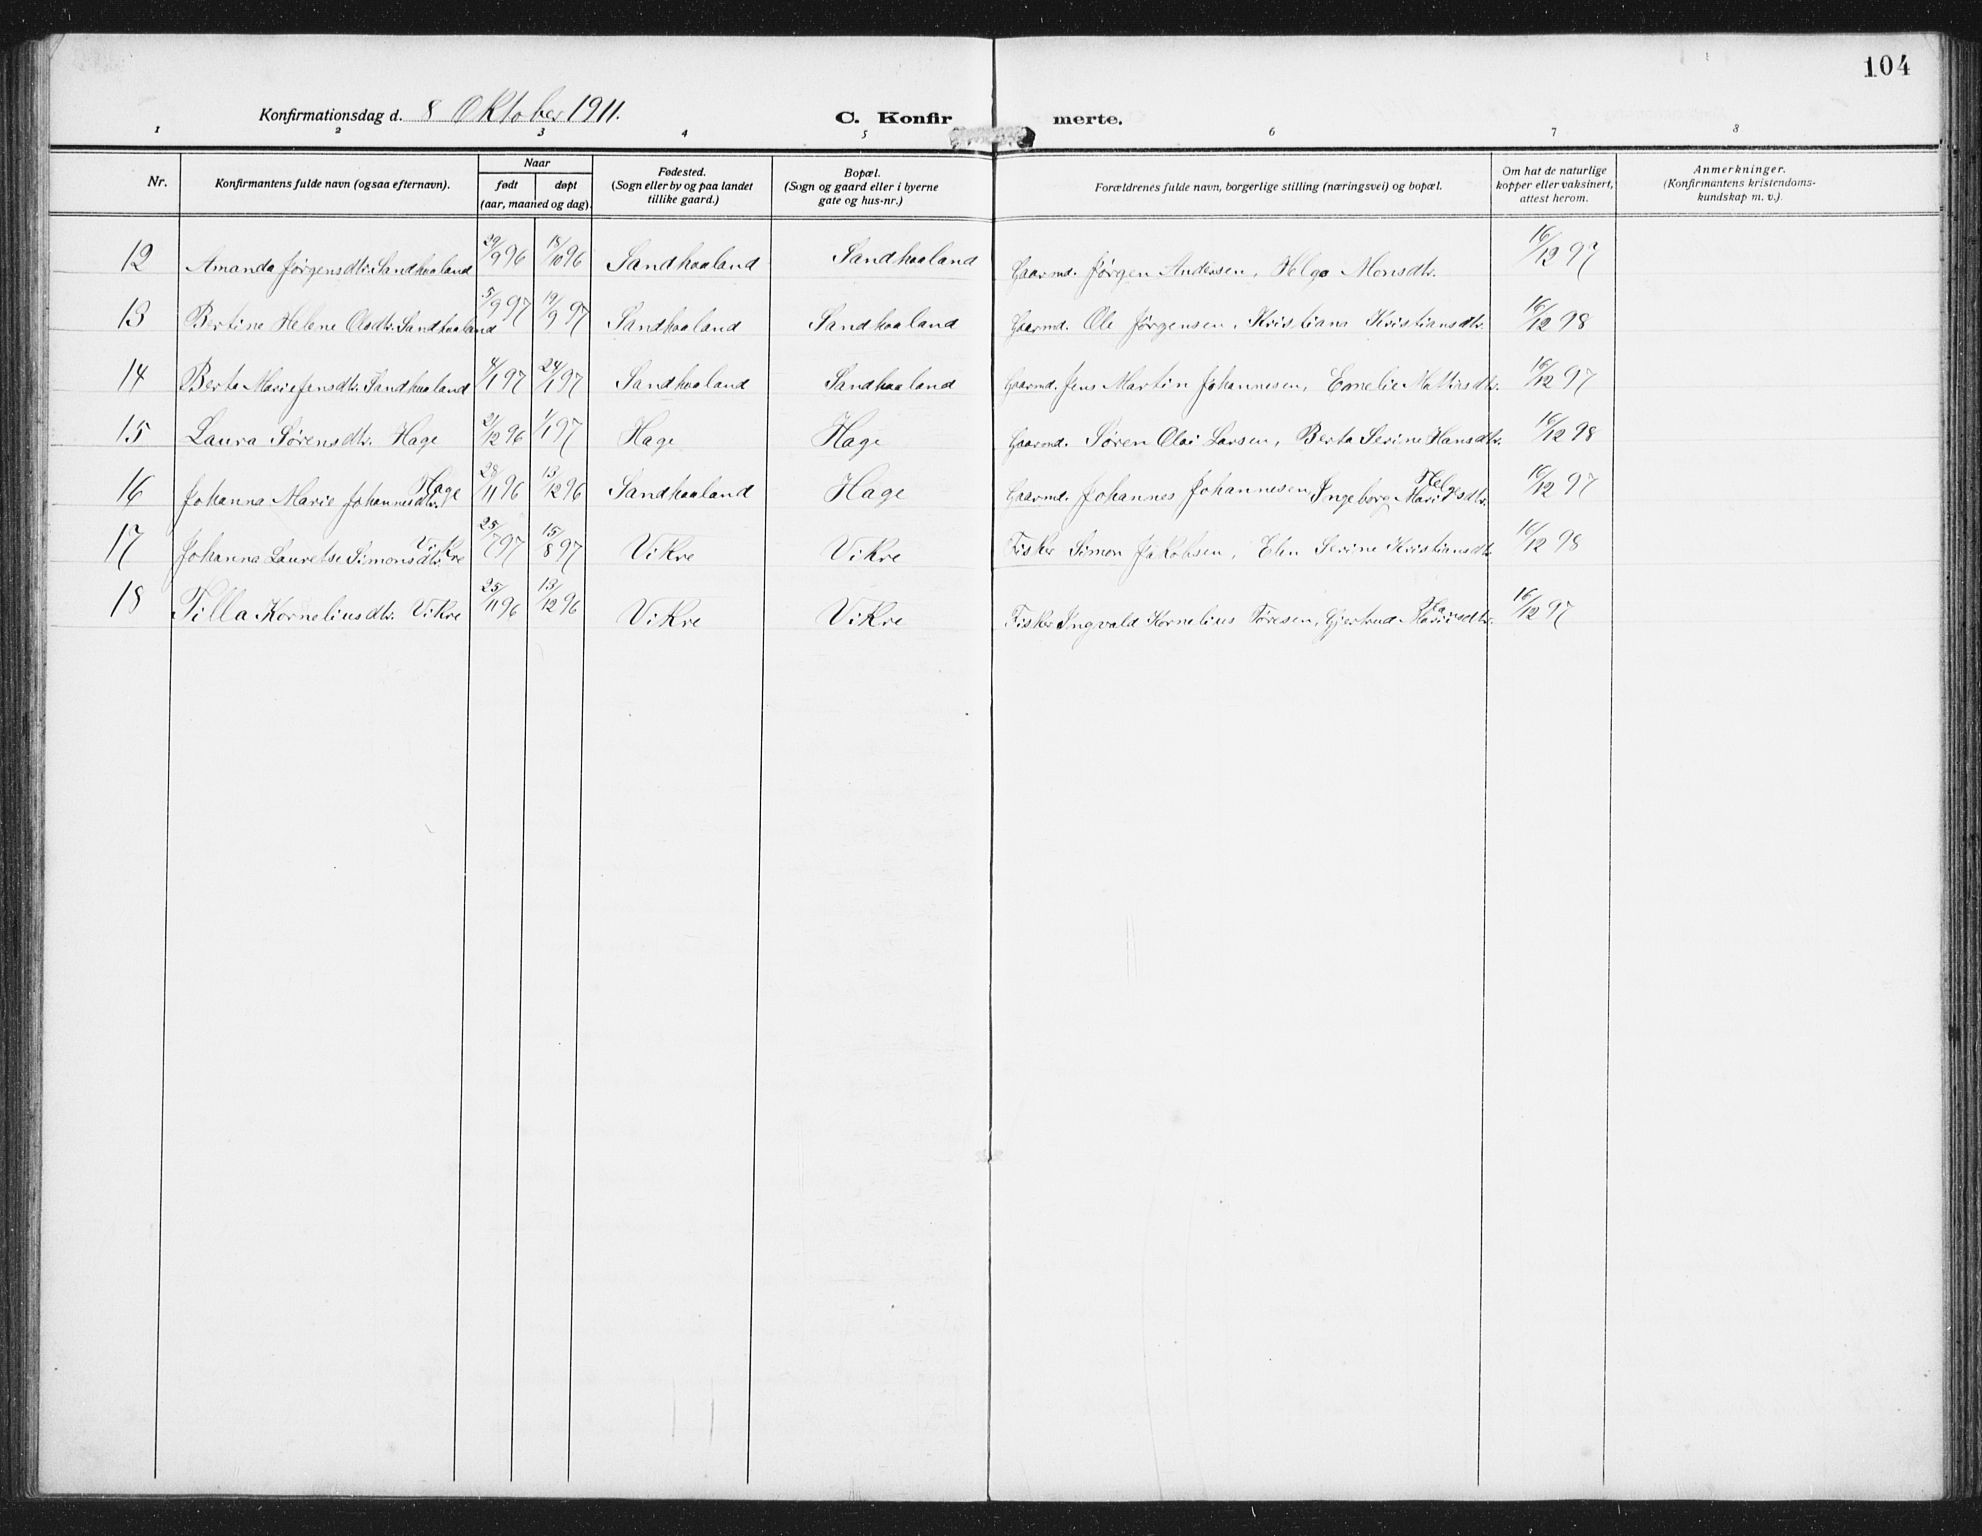 104
Konfirmationsdag d. 8 Oktober 1911. C. Konfirmerte.
1 2 3 4 5 6 7 8
Nr. Konfirmantens fulde navn (ogsaa efternavn). Naar født døpt (aar, maaned og dag). Fødested. (Sogn eller by og paa landet tillike gaard.) Bopæl. (Sogn og gaard eller i byerne gate og hus-nr.) Forældrenes fulde navn, borgerlige stilling (næringsvei) og bopæl. Om hat de naturlige kopper eller vaksinert, attest herom. Anmerkninger. (Konfirmantens kristendoms-kundskap m. v.)
12 Amanda Jørgensdtr. Sandhaaland 29/9 96 18/10 96 Sandhaaland Sandhaaland Gaarmd. Jørgen Andersen, Helga Monsdtr. 16/12 97
13 Bertine Helene Olsdtr. Sandhaaland 5/9 97 19/9 97 Sandhaaland Sandhaaland Gaarmd. Ole Jørgensen, Kristiana Kristiansdtr. 16/12 98
14 Berta Marie Jensdtr. Sandhaaland 4/1 97 24/1 97 Sandhaaland Sandhaaland Gaarmd. Jens Martin Johannesen, Emelie Mattiasdtr. 16/12 97
15 Laura Sørensdtr. Hage 21/12 96 1/1 97 Hage Hage Gaarmd. Søren Olai Larsen, Berta Serine Hansdtr. 16/12 98
16 Johanna Marie Johannesdtr. Hage 28/11 96 13/12 96 Sandhaaland Hage Gaarmd. Johannes Johannesen Ingeborg Marie Helgesdtr. 16/12 97
17 Johanna Lauretse Simonsdtr. Vikre 25/7 97 15/8 97 Vikre Vikre Fisker Simon Jakobsen, Elen Serine Kristiansdtr. 16/12 98
18 Tilla Korneliusdtr. Vikre 25/11 96 13/12 96 Vikre Vikre Fisker Ingvald Kornelius Tøresen, Gjertrud 16/12 97